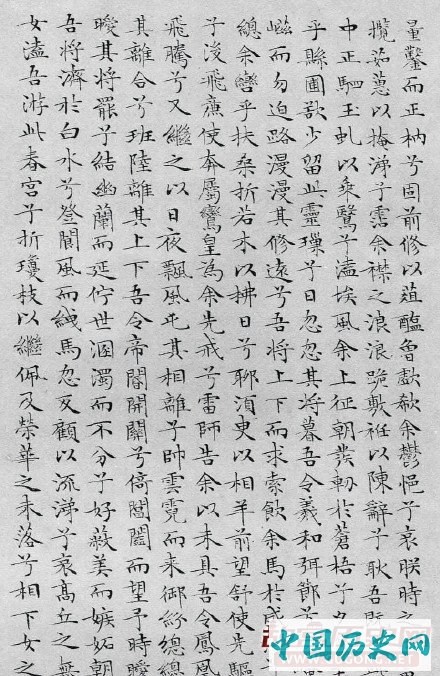 量鑿而正枘兮固前修以葅醢曾歔欷余鬱悒兮哀朕時之
攬茹蕙以掩涕兮霑余襟之浪浪跪敷衽以陳辭兮耿吾
中正駟玉虬以乘鷖兮溘埃風余上征朝發軔於蒼梧兮
乎縣圃欲少留此靈璅兮日忽忽其將暮吾令羲和弭節兮
嵫而勿迫路漫漫其修遠兮吾將上下而求索飲余馬於咸
總余轡乎扶桑折若木以拂日兮聊須臾以相羊前望舒使先驅
兮後飛廉使奔屬鸞皇為余先戒兮雷師告余以未具吾令鳳凰
飛騰兮又繼之以日夜飄風屯其相離兮帥雲霓而来御紛總總
其離合兮班陸離其上下吾令帝閽開關兮倚閶闔而望予時曖
曖其將罷兮結幽蘭而延佇世溷濁而不分兮好蔽美而嫉妬朝
吾將濟於白水兮登閬風而緤馬忽反顧以流涕兮哀高丘之無
女溘吾游此春宮兮折瓊枝以繼佩及榮華之未落兮相下女之
中国历史网